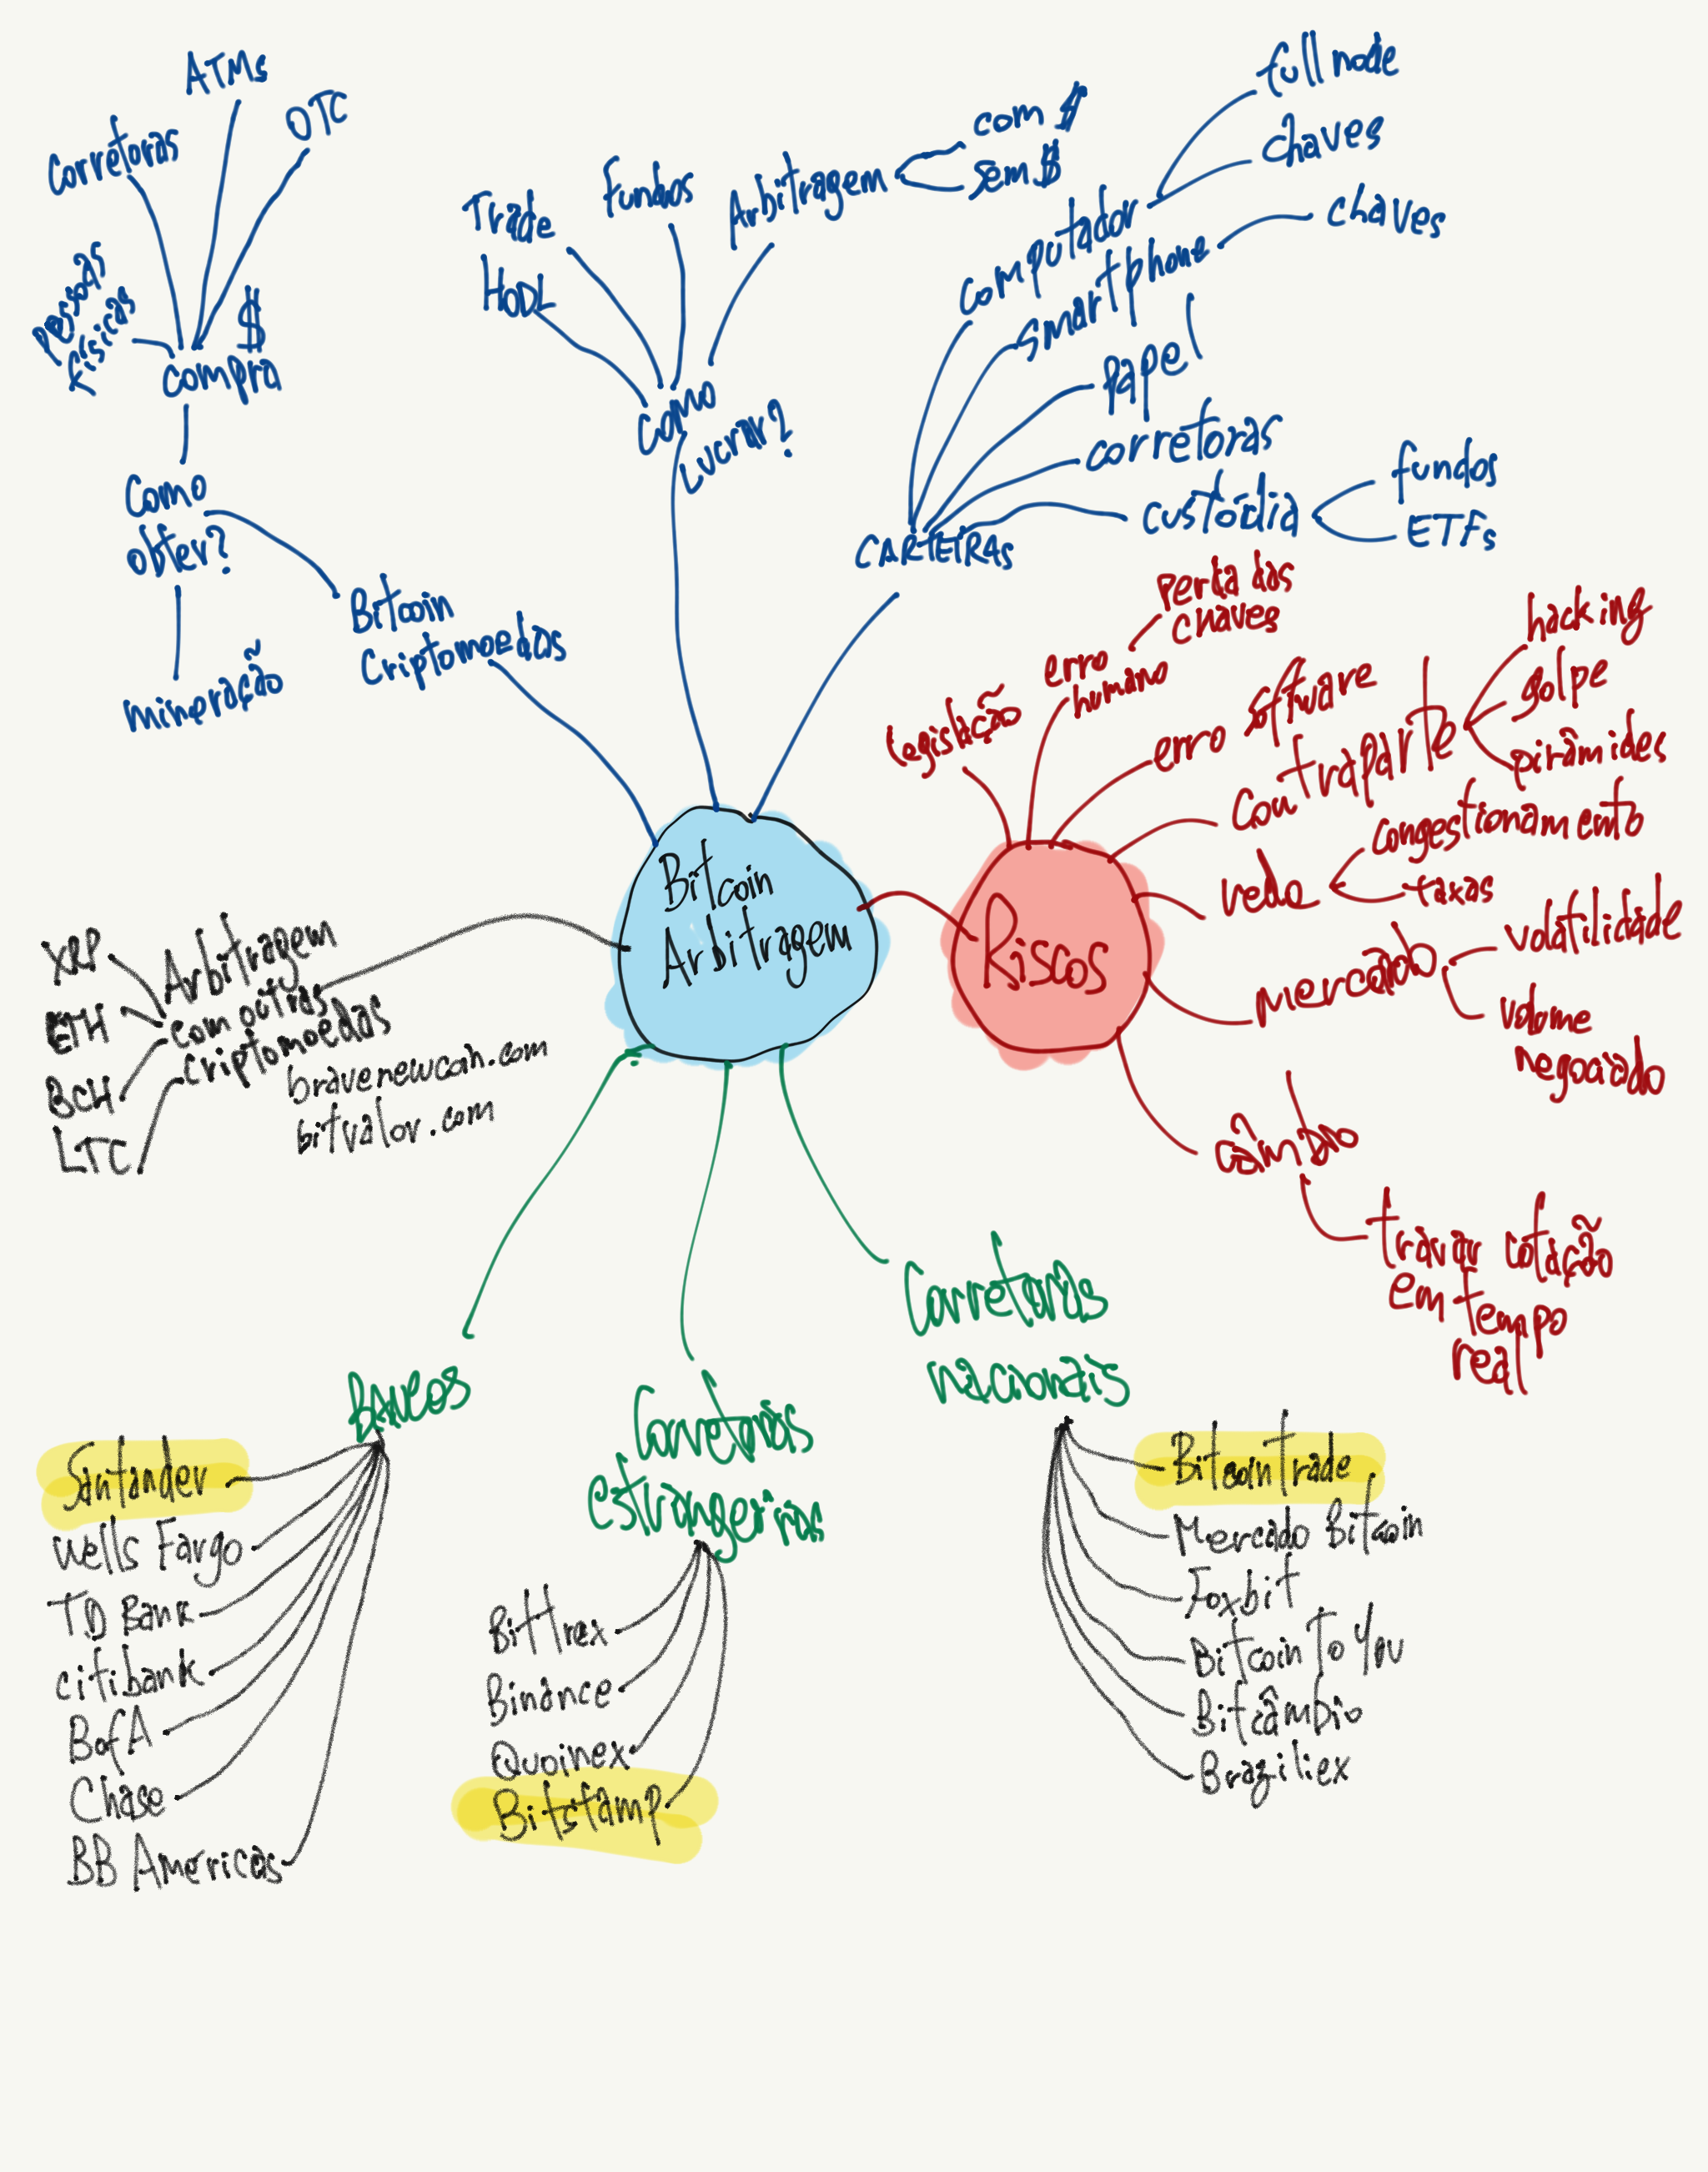 ATMs
OTC
Corretoras
Pessoas
físicas
$
compra
Como
obter?
mineração
Bitcoin
Criptomoedas
Trade
HODL
Fundos
Arbitragem
com $
sem $
Como
Lucrar?
full node
chaves
computador
smartphone
chaves
papel
corretoras
custódia
fundos
ETFs
CARTEIRAS
Bitcoin
Arbitragem
Riscos
Legislação
erro
humano
perda das
chaves
erro software
Contraparte
hacking
golpe
pirâmides
rede
congestionamento
taxas
mercado
volatilidade
volume
negociado
câmbio
travar cotação
em tempo
real
XRP
ETH
BCH
LTC
Arbitragem
com outras
criptomoedas
bravenewcoin.com
bitvalor.com
BANCOS
Santander
Wells Fargo
TD Bank
citibank
BofA
Chase
BB Americas
Corretoras
estrangeiras
Bittrex
Binance
Quoinex
Bitstamp
Corretoras
nacionais
BitcoinTrade
Mercado Bitcoin
Foxbit
BitcoinToYou
Bitcâmbio
Braziliex